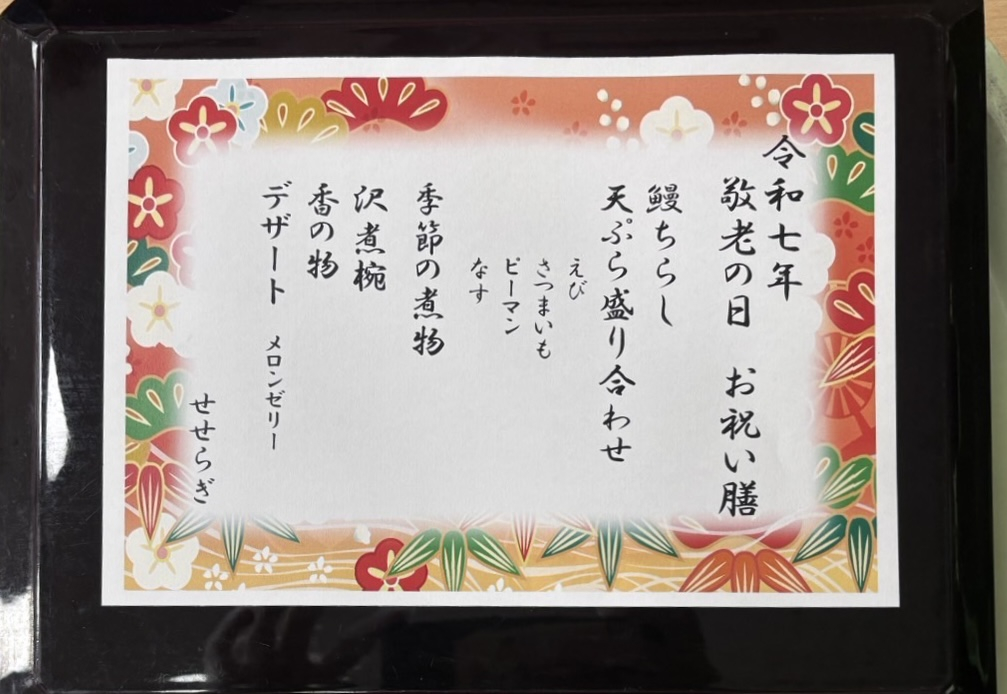 令和七年
敬老の日　お祝い膳
鰻ちらし
天ぷら盛り合わせ
えび
さつまいも
ピーマン
なす
季節の煮物
沢煮椀
香の物
デザート　メロンゼリー
せせらぎ